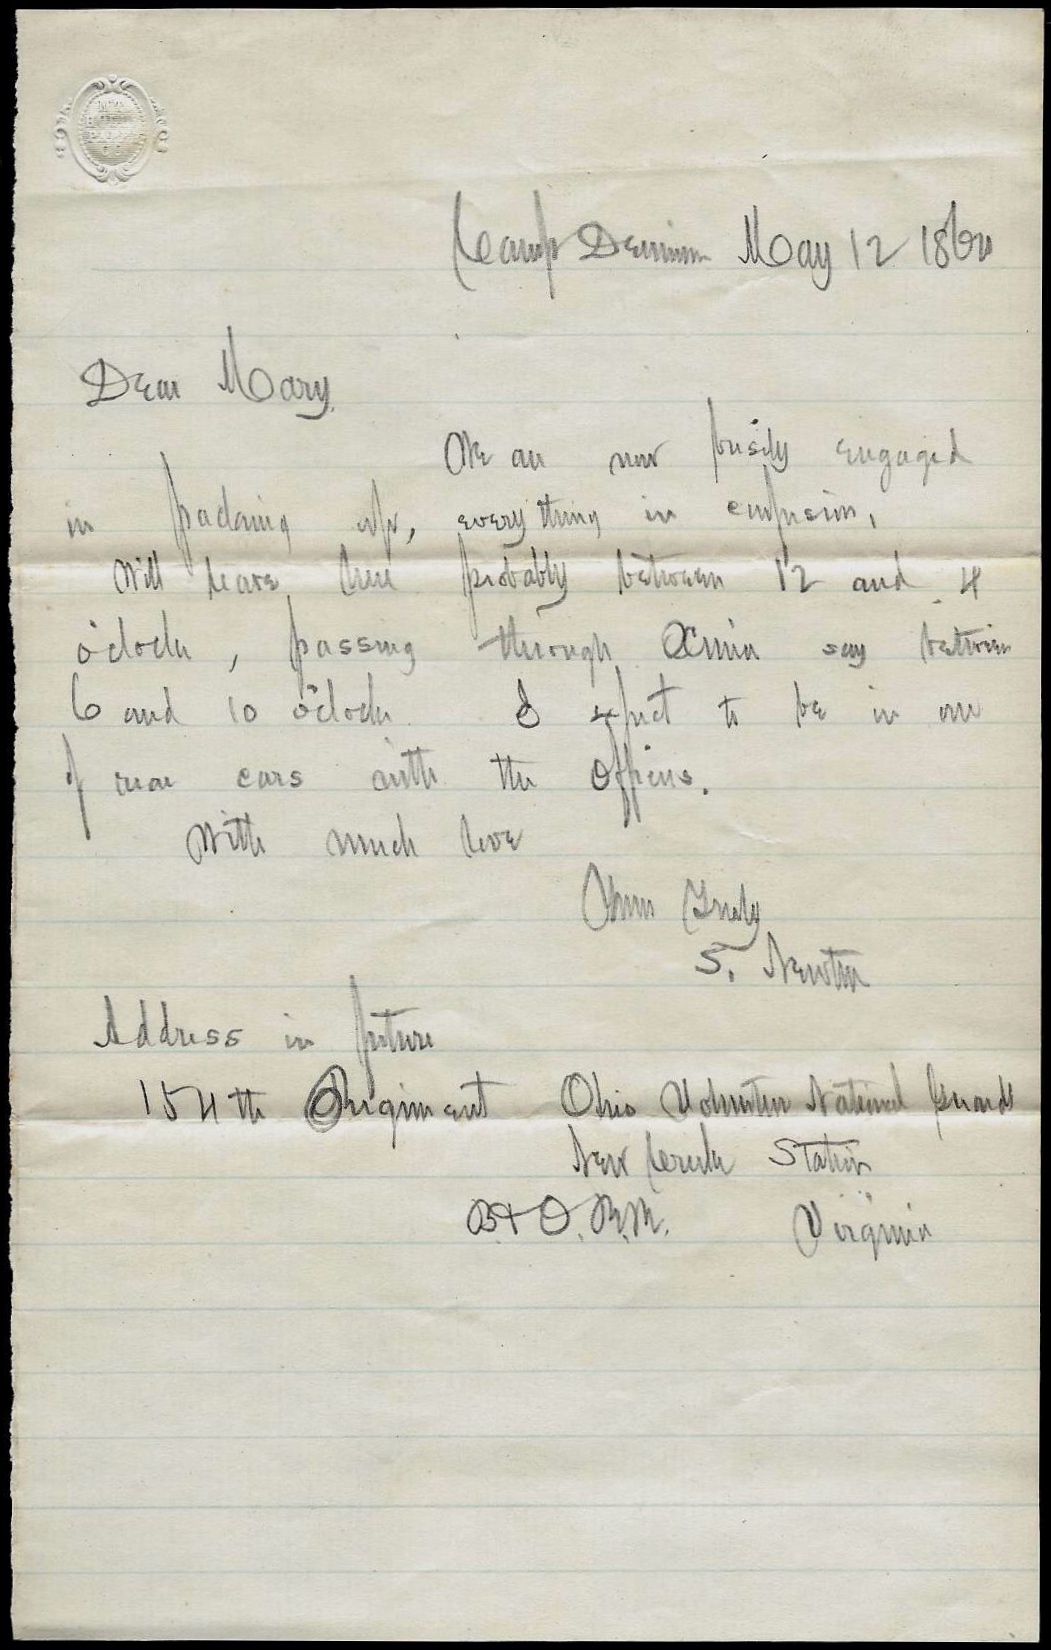 Camp Dennison May 12 1864
Dear Mary
We are now busily engaged
in packing up, everything in confusion,
Will leave here probably between 12 and 4
o'clock, passing through Xenia say between
6 and 10 o'clock. I expect to be in one
of rear cars with the Officers.
With much love
Yours Truly
S. Newton
Address in future
154th Regiment Ohio Volunteer National Guards
New Creek Station
B & O. R.R. Virginia